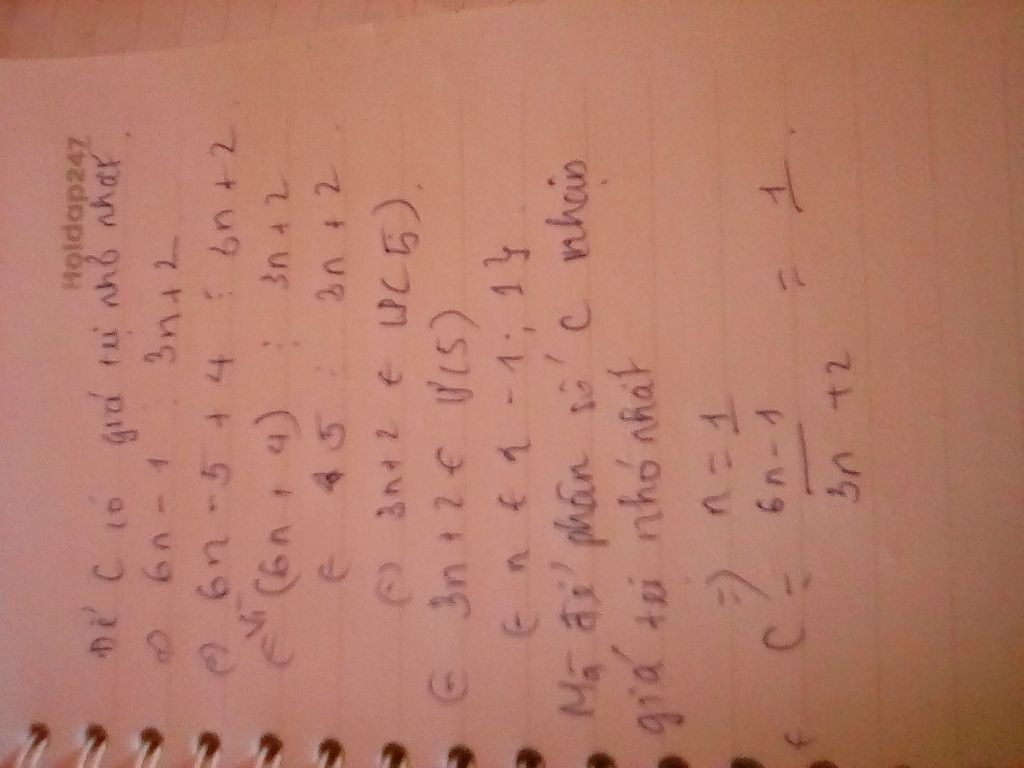 Hoidap247
Để C có giá trị nhỏ nhất.
6n - 1 ⋮ 3n + 2
6n - 5 + 4 ⋮ 6n + 2
Vì (6n + 4) ⋮ 3n + 2
5 ⋮ 3n + 2
3n + 2 ∈ Ư(5).
3n + 2 ∈ Ư(5)
n ∈ { -1; 1}
Mà để phân số C nhận
giá trị nhỏ nhất
=) n = 1
C = 6n - 1 / 3n + 2 = 1